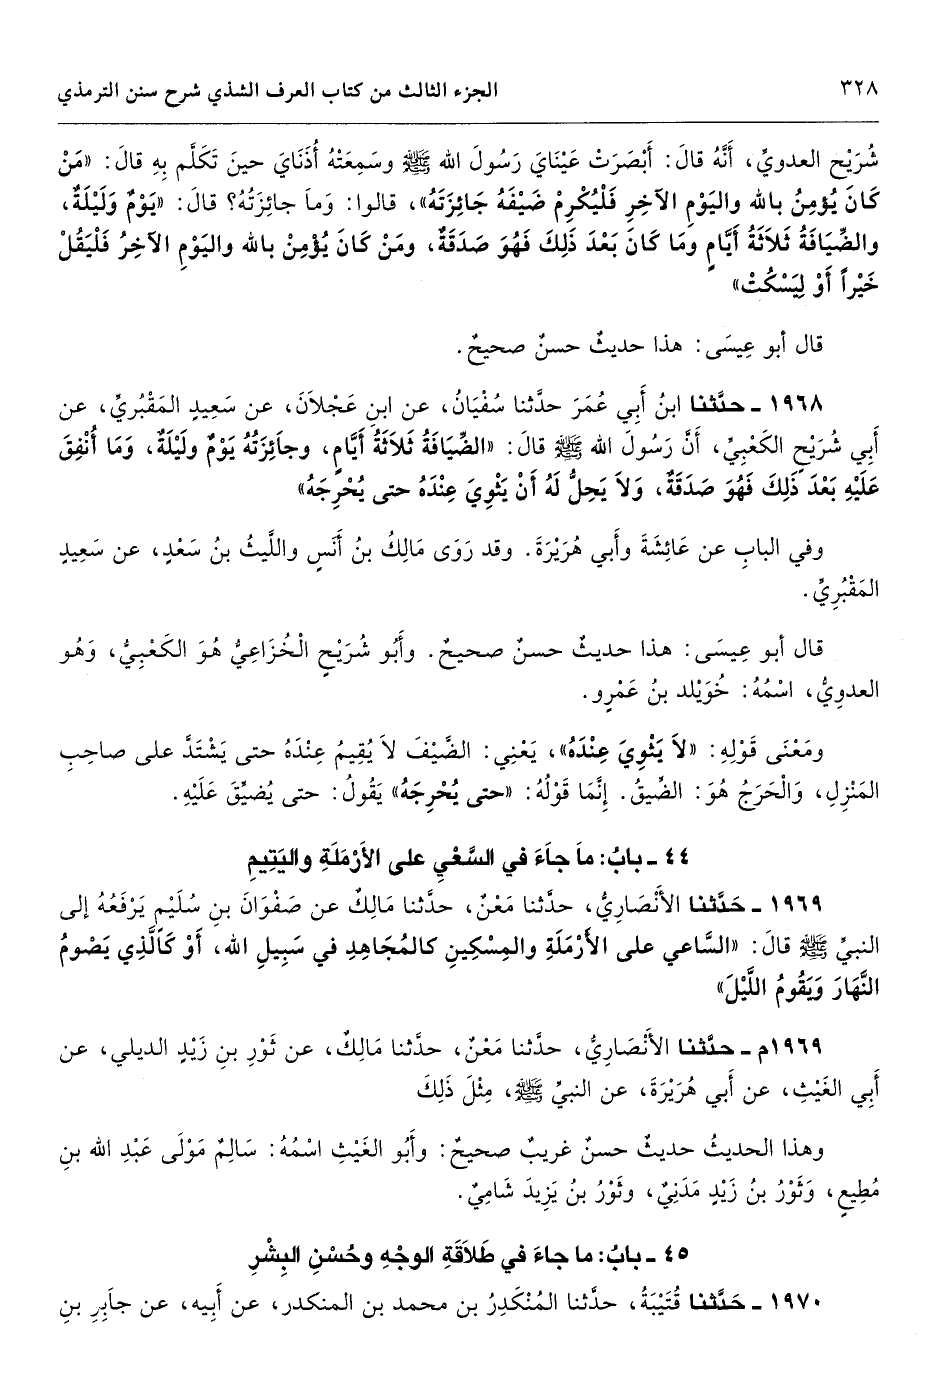 ٣٢٨ الجزء الثالث من كتاب العرف الشذي شرح سنن الترمذي
شُرَيْح العدويِّ، أَنَّهُ قالَ: أَبْصَرَتْ عَيْنَايَ رَسُولَ الله ﷺ وسَمِعَتْهُ أُذَنَايَ حينَ تَكَلَّم بِهِ قالَ: «مَنْ
كَانَ يُؤمِنُ بالله واليَوْمِ الآخِرِ فَلْيُكْرِمْ ضَيْفَهُ جَائِزَتَهُ»، قالوا: وَماَ جائِزَتُهُ؟ قالَ: «يَوْمٌ وَلَيْلَةٌ،
والضِّيَافَةُ ثَلاَثَةُ أَيَّامٍ وَمَا كَانَ بَعْدَ ذَلِكَ فَهُوَ صَدَقَةٌ، ومَنْ كَانَ يُؤْمِنْ بالله واليَوْمِ الآخِرُ فَلْيَقُلْ
خَيْراً أَوْ لِيَسْكُتْ»
قال أبو عِيسَى: هذا حديثٌ حسنٌ صحيحٌ.
١٩٦٨ ـ حدَّثنا ابنُ أَبِي عُمَرَ حدَّثنا سُفْيَانُ، عن ابنِ عَجْلاَنَ، عن سَعِيدِ المَقْبُريِّ، عن
أَبِي شُرَيْحٍ الكَعْبِيِّ، أَنَّ رَسُولَ الله ﷺ قالَ: «الضِّيَافَةُ ثَلاَثَةُ أَيَّامٍ، وجاَئِزَتُهُ يَوْمٌ ولَيْلَةٌ، وَمَا أُنْفِقَ
عَلَيْهِ بَعْدَ ذَلِكَ فَهُوَ صَدَقَةٌ، وَلاَ يَحِلُّ لَهُ أَنْ يَثْوِيَ عِنْدَهُ حتى يُحْرِجَهُ»
وفي البابِ عن عَائِشَةَ وأَبي هُرَيْرَةَ. وقد رَوَى مَالِكُ بنُ أَنَسٍ واللَّيثُ بنُ سَعْدٍ، عن سَعِيدٍ
المَقْبُرِيِّ.
قال أبو عِيسَى: هذا حديثٌ حسنٌ صحيحٌ. وأَبُو شُرَيْحٍ الْخُزَاعِيُّ هُوَ الكَعْبِيُّ، وَهُو
العدوِيُّ، اسْمُهُ: خُوَيْلد بنُ عَمْرٍو.
ومَعْنَى قَوْلِهِ: «لاَ يَثْوِيَ عِنْدَهُ»، يَعْنِي: الضَّيْفَ لاَ يُقِيمُ عِنْدَهُ حتى يَشْتَدَّ على صاحِبِ
المَنْزِلِ، وَالْحَرَجُ هُوَ: الضِّيقُ. إنَّمَا قَوْلُهُ: «حتى يُحْرِجَهُ» يَقُولُ: حتى يُضيِّقَ عَلَيْهِ.
٤٤ ـ بابُ: ماَ جاَءَ في السَّعْيِ على الأَرْمَلَةِ واليَتِيمِ
١٩٦٩ ـ حَدَّثنا الأَنْصَارِيُّ، حدَّثنا مَعْنٌ، حدَّثنا مَالِكٌ عن صَفْوَانَ بنِ سُلَيْمٍ يَرْفَعُهُ إلى
النبيِّ ﷺ قالَ: «السَّاعي على الأَرْمَلَةِ والمِسْكِينِ كالمُجَاهِدِ في سَبِيلِ الله، أَوْ كَالَّذِي يَصُومُ
النَّهَارَ وَيَقُومُ اللَّيْلَ»
١٩٦٩م ـ حدَّثنا الأَنْصَارِيُّ، حدَّثنا مَعْنٌ، حدَّثنا مَالِكٌ، عن ثَوْرِ بنِ زَيْدٍ الديلي، عن
أَبِي الغَيْثِ، عن أَبي هُرَيْرَةَ، عن النبيِّ ﷺ، مِثْلَ ذَلِكَ
وهذا الحديثُ حديثٌ حسنٌ غريبٌ صحيحٌ: وأَبُو الغَيْثِ اسْمُهُ: سَالِمٌ مَوْلَى عَبْدِ الله بنِ
مُطِيعٍ، وَثَوْرُ بنُ زَيْدٍ مَدَنِيٌ، وثَوْرُ بنُ يَزِيدَ شَامِيٌ.
٤٥ ـ بابُ: ما جاءَ في طَلاَقَةِ الوجْهِ وحُسْنِ البِشْرِ
١٩٧٠ ـ حَدَّثنا قُتَيْبَةُ، حدَّثنا المُنْكَدِرُ بن محمد بن المنكدر، عن أَبِيه، عن جاَبِرِ بنِ